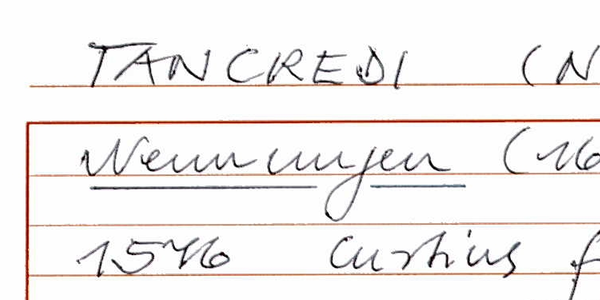 TANCREDI (N
Wenningen (16
1546 Curtius f